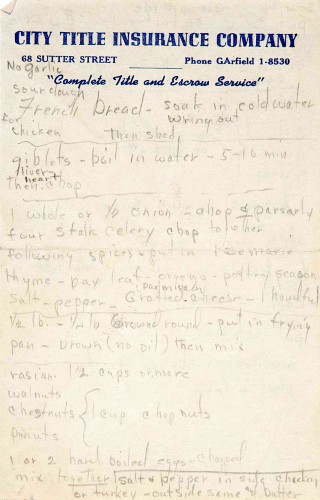 CITY TITLE INSURANCE COMPANY
68 SUTTER STREET Phone GArfield 1-8530
"Complete Title and Escrow Service"
No garlic
sourdough
French Bread - soak in cold water
wring out
for chicken then shed
giblets - boil in water - 5-10 min
liver
heart
then chop
1 whole or 1/2 onion - chop & parsley
four stalk celery chop together
following spices - put in rosemarie
thyme - bay leaf - - poltry season
parmigan
salt - pepper - Grated cheese - 1 handful
1/2 lb. - 1/4 lb Ground round - put in frying
pan - brown (no oil) then mix
rasian. 1 1/2 cups or more
walnuts
chestnuts 1 cup chop nuts
pinuts
1 or 2 hard boiled eggs - chopped
mix together salt & pepper in side chicken
or turkey - outside same butter